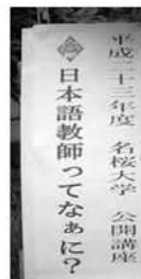 平成二十三年度 名桜大学 公開講座
日本語教師ってなぁに?